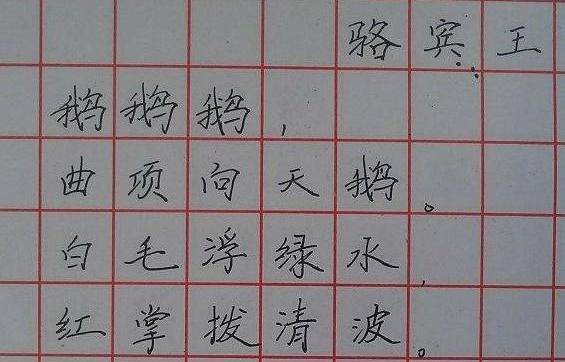 骆宾王
鹅鹅鹅，
曲项向天鹅。
白毛浮绿水，
红掌拨清波。